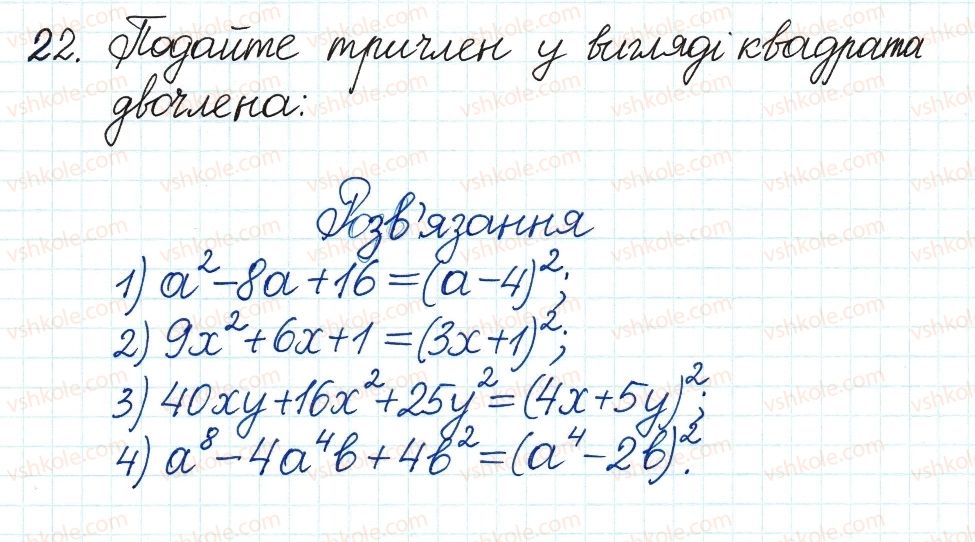 22. Подайте тричлен у вигляді квадрата
двочлена:
Розв'язання
1) a² - 8a + 16 = (a - 4)²;
2) 9x² + 6x + 1 = (3x + 1)²;
3) 40xy + 16x² + 25y² = (4x + 5y)²;
4) a⁸ - 4a⁴b + 4b² = (a⁴ - 2b)².